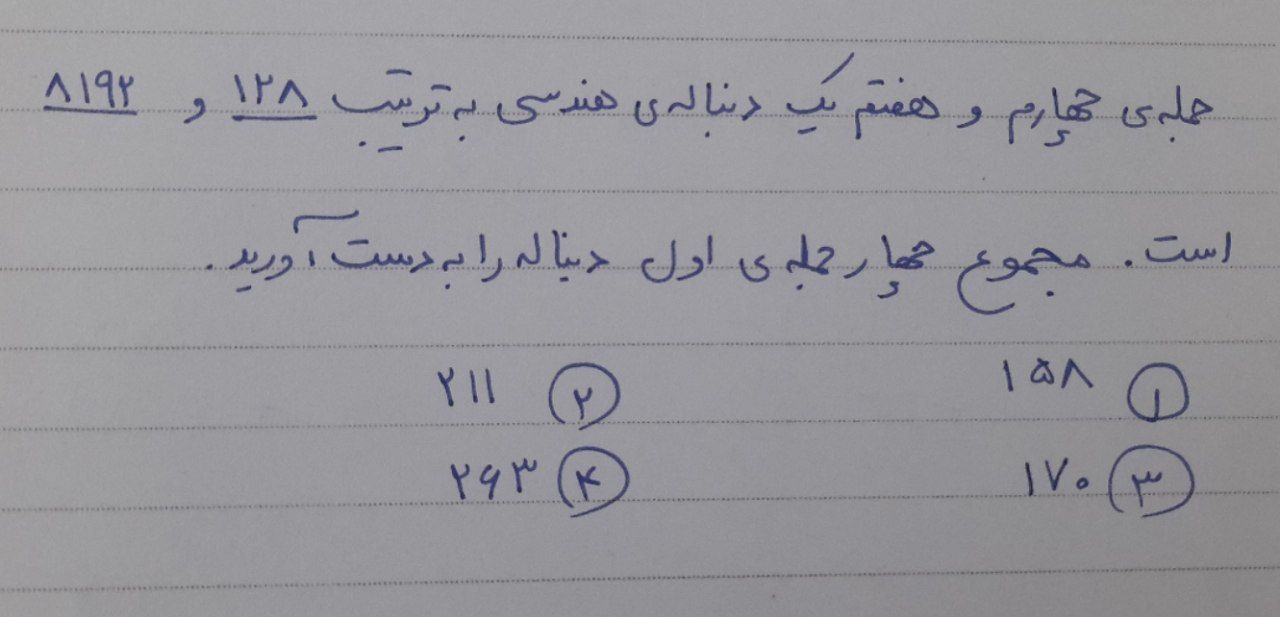 جمله‌ی چهارم و هفتم یک دنباله‌ی هندسی به ترتیب ۱۲۸ و ۸۱۹۲
است. مجموع چهار جمله‌ی اول دنباله را به دست آورید.
۱ ۱۵۸ ۲ ۲۱۱
۳ ۱۷۰ ۴ ۲۶۳